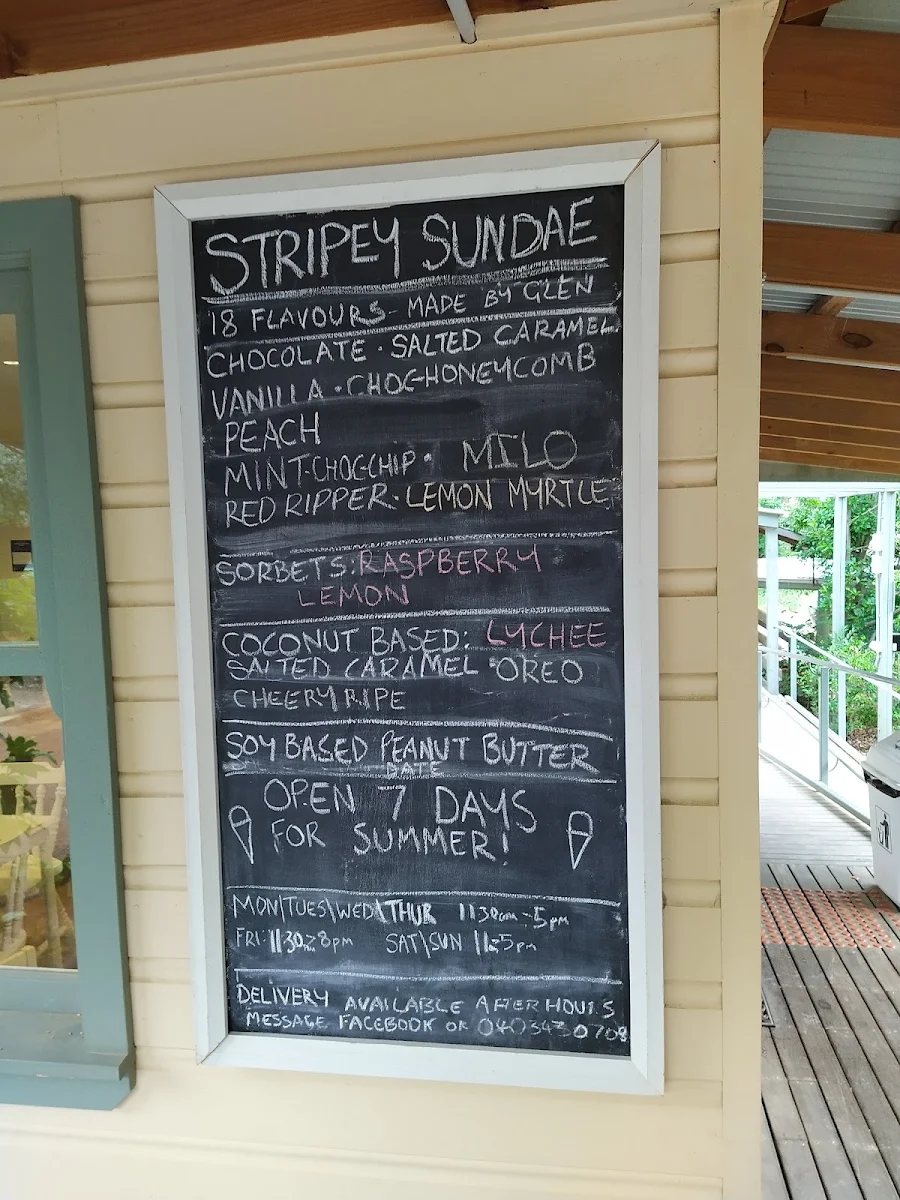 STRIPEY SUNDAE
18 FLAVOURS - MADE BY GLEN
CHOCOLATE · SALTED CARAMEL
VANILLA · CHOC-HONEYCOMB
PEACH
MINT-CHOC-CHIP · MILO
RED RIPPER · LEMON MYRTLE
SORBETS: RASPBERRY
LEMON
COCONUT BASED: LYCHEE
SALTED CARAMEL · OREO
CHEERY RIPE
SOY BASED PEANUT BUTTER
DATE
OPEN 7 DAYS
FOR SUMMER!
MON\TUES\WED\THUR 1130am - 5pm
FRI: 1130-8pm SAT\SUN 11-5pm
DELIVERY AVAILABLE AFTER HOURS
MESSAGE FACEBOOK OR 0403430708